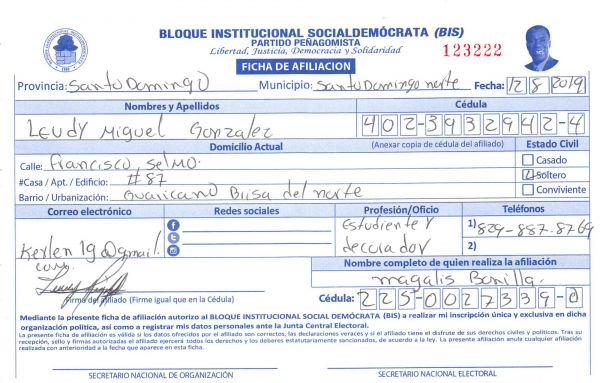 BLOQUE INSTITUCIONAL SOCIALDEMÓCRATA (BIS)
PARTIDO PEÑAGOMISTA
Libertad, Justicia, Democracia y Solidaridad
123222
FICHA DE AFILIACION
Provincia: Santo Domingo Municipio: Santo Domingo norte Fecha: 12 8 2019
Nombres y Apellidos Cédula
Leudy Miguel Gonzalez 402-3932942-4
Domicilio Actual (Anexar copia de cédula del afiliado) Estado Civil
Calle: Francisco, Selmo. Casado
#Casa / Apt. / Edificio: #87 Soltero
Barrio / Urbanización: Guaricano Brisa del norte Conviviente
Correo electrónico Redes sociales Profesión/Oficio Teléfonos
Estudiente y 1) 829-887-8769
Kerlen19@gmail. decorador 2)
com
Nombre completo de quien realiza la afiliación
Magalis Bonilla
Firma del afiliado (Firme igual que en la Cédula) Cédula: 225-0027339-0
Mediante la presente ficha de afiliación autorizo al BLOQUE INSTITUCIONAL SOCIALDEMÓCRATA (BIS) a realizar mi inscripción única y exclusiva en dicha
organización política, así como a registrar mis datos personales ante la Junta Central Electoral.
La presente ficha de afiliación es válida si los datos ofrecidos por el afiliado son correctos, las declaraciones veraces y si el afiliado tiene el disfrute de sus derechos civiles y políticos. Tras su
recepción, sello y firmas autorizadas el afiliado ejercerá todos los derechos y los deberes estatutariamente sancionados, de acuerdo a la ley. La presente afiliación anula cualquier afiliación
realizada con anterioridad a la fecha que aparece en esta ficha.
SECRETARIO NACIONAL DE ORGANIZACIÓN SECRETARIO NACIONAL ELECTORAL